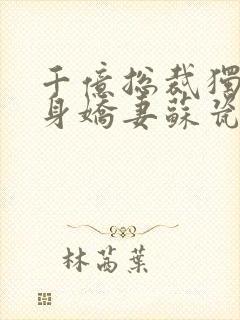 千億總裁獨
身嬌妻蘇瓷
林茵葉